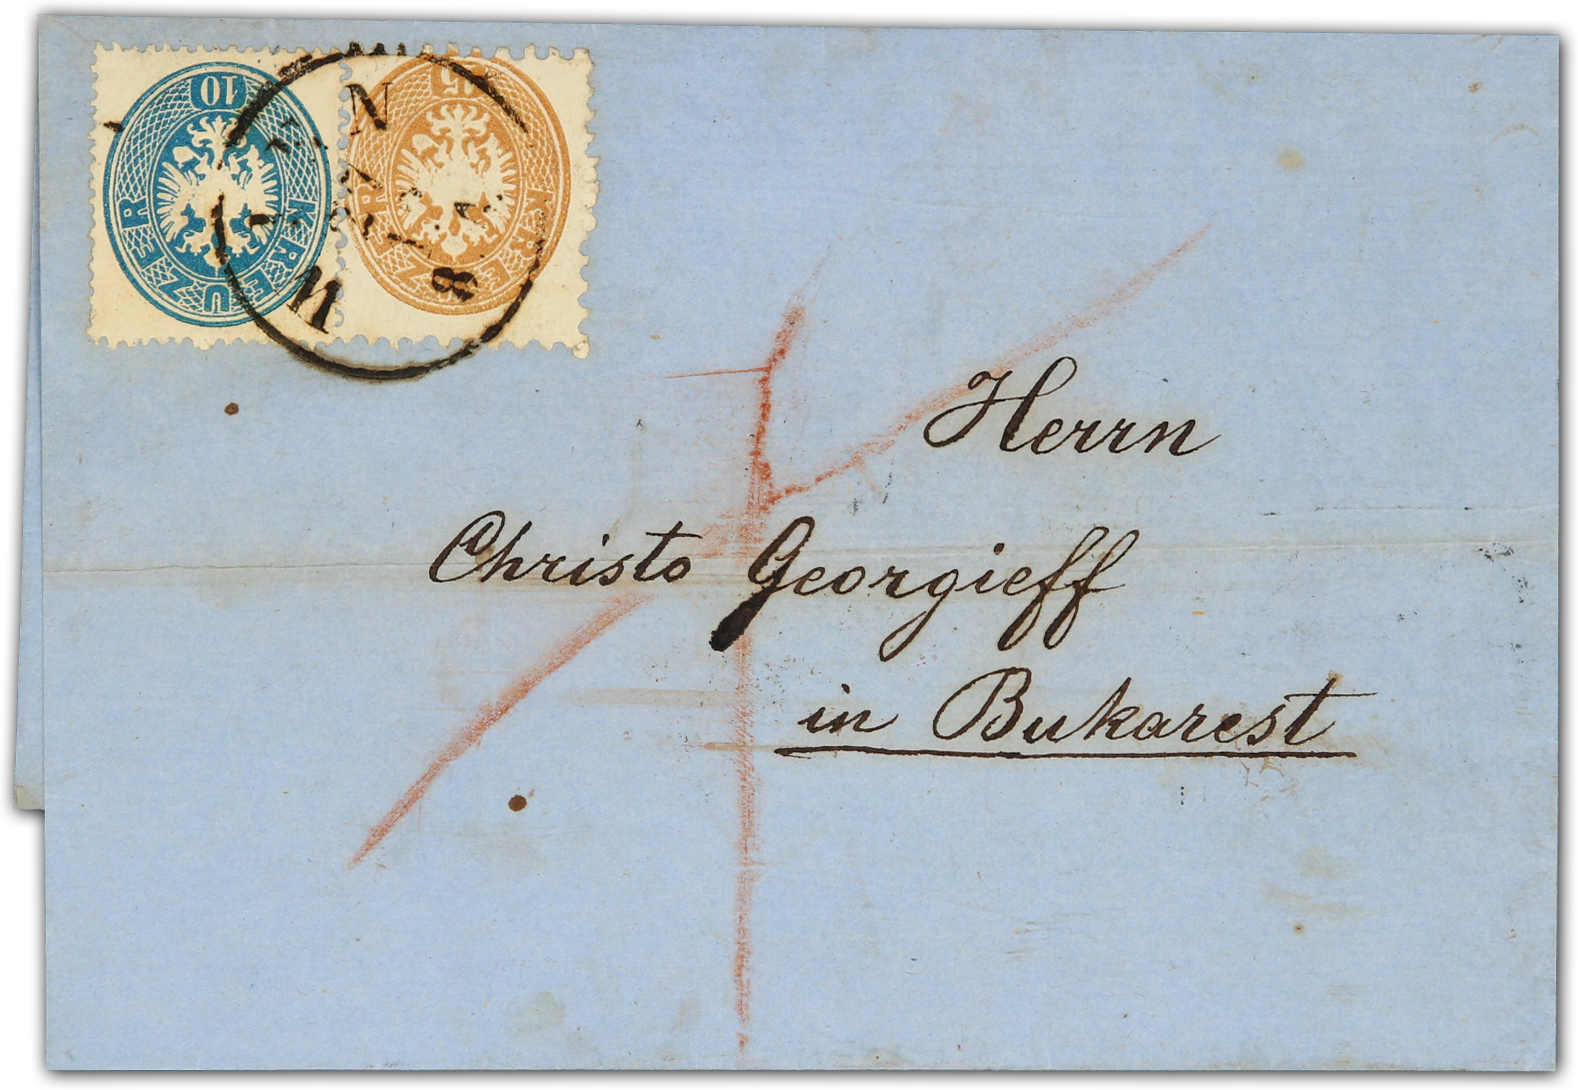 10
KREUZER
15
KREUZER
WIEN
Herrn
Christo Georgieff
in Bukarest